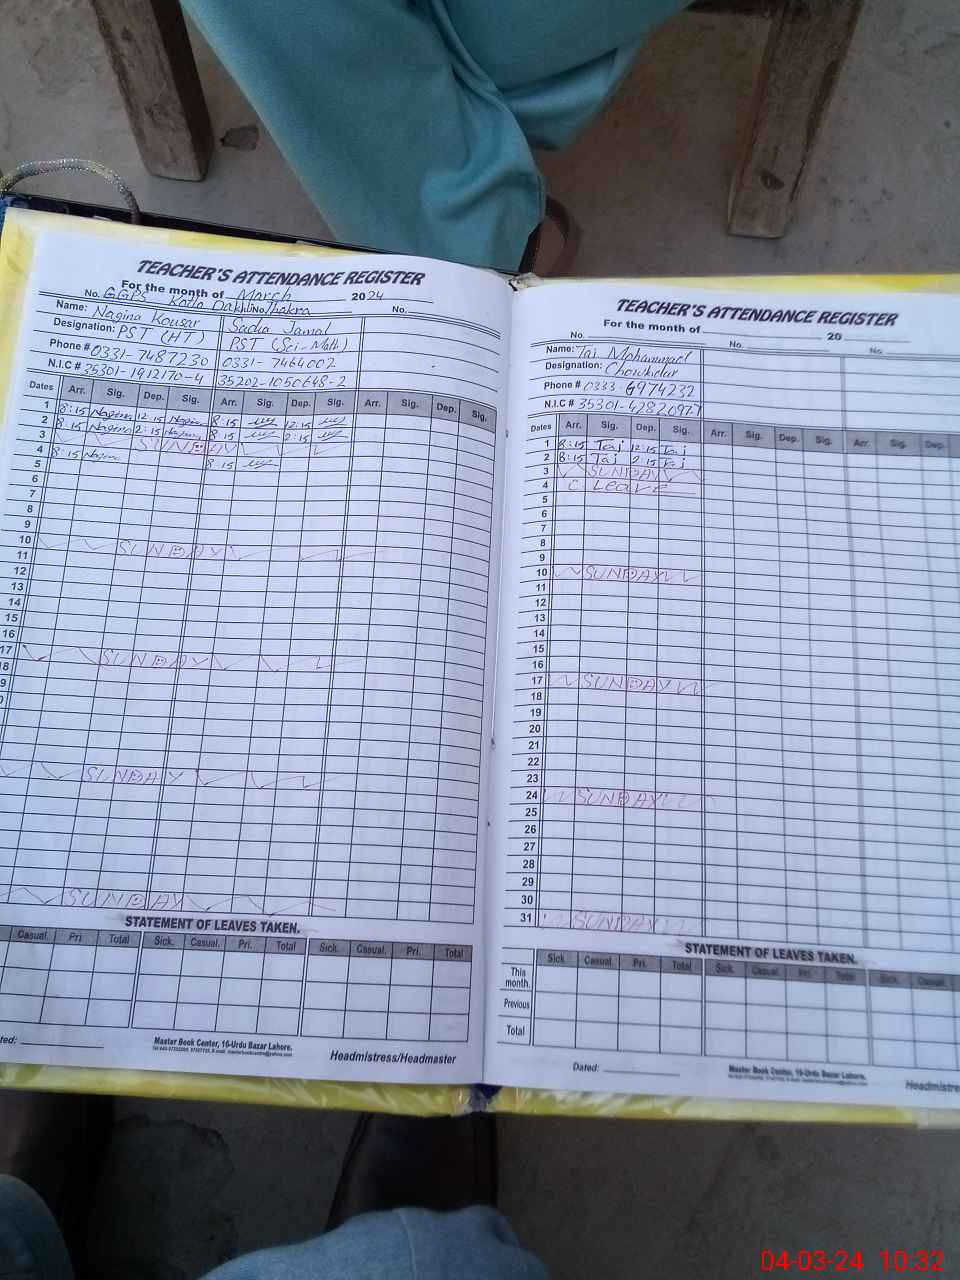 TEACHER'S ATTENDANCE REGISTER
For the month of March 2024
No. GGPS Kotla Dakhlina Thakra No.
Name: Nagina Kousar Sadia Jamal
Designation: PST (HT) PST (Sci-Math)
Phone # 0331-7487230 0331-7464002
N.I.C # 35301-1912170-4 35202-1050648-2
Dates Arr. Sig. Dep. Sig. Arr. Sig. Dep. Sig. Arr. Sig. Dep. Sig.
1 8:15 Nagina 12:15 Nagina 8:15 12:15
2 8:15 Nagina 2:15 Nagina 8:15 2:15
3 SUNDAY
4 8:15 Nagina 8:15
5
6
7
8
9
10 SUNDAY
11
12
13
14
15
16
17 SUNDAY
18
SUNDAY
SUNDAY
STATEMENT OF LEAVES TAKEN.
Casual. Pri. Total Sick. Casual. Pri. Total Sick. Casual. Pri. Total
Master Book Center, 16-Urdu Bazar Lahore.
Headmistress/Headmaster
TEACHER'S ATTENDANCE REGISTER
For the month of 20
No. No. No.
Name: Taj Mohammad
Designation: Chowkidar
Phone # 0333-6974232
N.I.C # 35301-4282097-7
Dates Arr. Sig. Dep. Sig. Arr. Sig. Dep. Sig. Arr. Sig. Dep.
1 8:15 Taj 12:15 Taj
2 8:15 Taj 2:15 Taj
3 SUNDAY
4 C Leave
5
6
7
8
9
10 SUNDAY
11
12
13
14
15
16
17 SUNDAY
18
19
20
21
22
23
24 SUNDAY
25
26
27
28
29
30
31 SUNDAY
STATEMENT OF LEAVES TAKEN.
Sick. Casual. Pri. Total Sick. Casual. Pri. Total Sick. Casual.
This month.
Previous
Total
Dated:
Master Book Center, 16-Urdu Bazar Lahore.
04-03-24 10:32